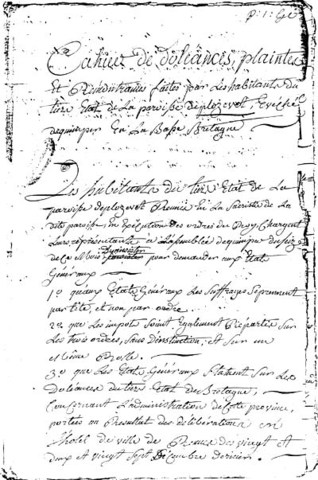 p. 1: ere
Cahier de doléances, plaintes
Et Remontrances faites par les habitants du
tiers Etat de La paroisse de plozevet, Evêché
de quimper En La Basse Bretagne
Les habitants du tiers Etat de La
paroisse de plozevet Reunis En La Sacristie de La
dite paroisse, en Execution des ordres du Roy Chargent
Leurs représentants a L'assemblée de quimper du seize
de ce Mois pour demander aux Etats
Généraux
1° quaux Etats Généraux Les Suffrages Se prennent
par tête, et non par ordre.
2° que Les impots Soint Egalement Répartis Sur
Les trois ordres, Sans distinction, et Sur un
même Rolle.
3° que Les Etats Généraux Statuent Sur Les
doléances du tiers Etat de Bretagne,
Concernant L'administration de cette province,
portées au Resultat des déliberations en
l'hotel de ville de Rennes des vingt et
deux au vingt Sept Décembre dernier.